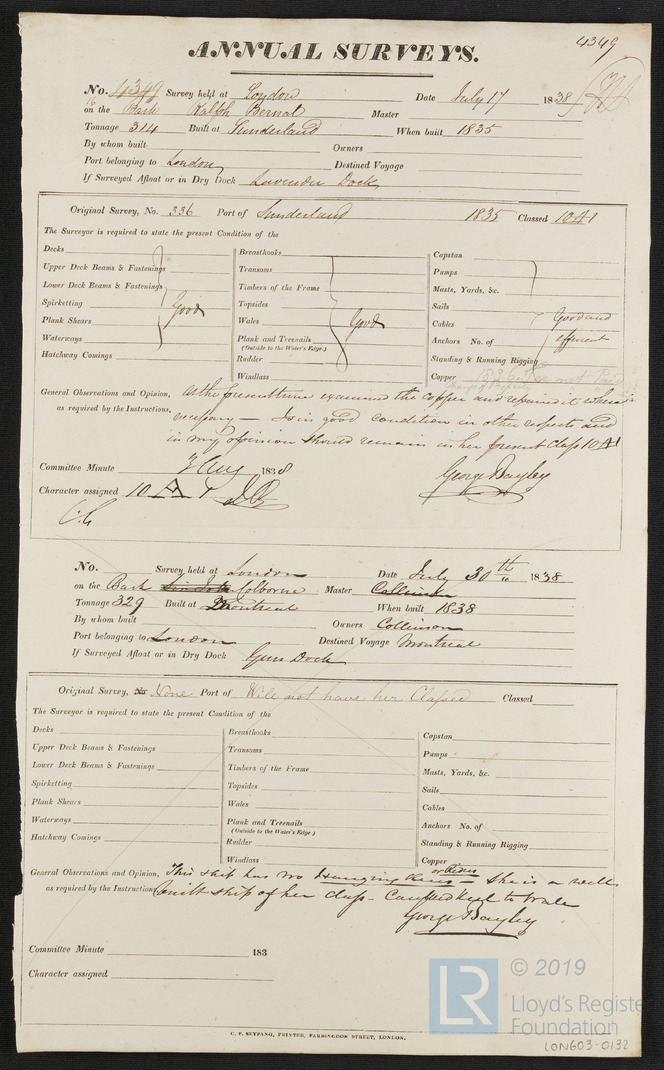 4349
ANNUAL SURVEYS.
No. 4349 Survey held at London Date July 17 1838
on the Bark Ralph Bernal Master
Tonnage 314 Built at Sunderland When built 1835
By whom built Owners
Port belonging to London Destined Voyage
If Surveyed Afloat or in Dry Dock Lavender Dock
Original Survey, No. 336 Port of Sunderland 1835 Classed 10 A1
The Surveyor is required to state the present Condition of the
Decks
Upper Deck Beams & Fastenings
Lower Deck Beams & Fastenings
Spirketting Good
Plank Shears
Waterways
Hatchway Comings
Breasthooks
Transoms
Timbers of the Frame
Topsides
Wales Good
Plank and Treenails
(Outside to the Water's Edge.)
Rudder
Windlass
Capstan
Pumps
Masts, Yards, &c.
Sails
Cables Good and
Anchors No. of efficient
Standing & Running Rigging
Copper 1836
General Observations and Opinion, At the present time examined the copper and repaired it where
as required by the Instructions, necessary — Is in good condition in other respects and
in my opinion should remain in her present Class 10 A1
Committee Minute 3 Aug 1838 George Bayley
Character assigned 10 A 1
No. Survey held at London Date July 30th 1838
on the Bark Sir John Colborne Master Collinson
Tonnage 329 Built at Montreal When built 1838
By whom built Owners Collinson
Port belonging to London Destined Voyage Montreal
If Surveyed Afloat or in Dry Dock Gun Dock
Original Survey, No. None Port of Will not have her Classed Classed
The Surveyor is required to state the present Condition of the
Decks
Upper Deck Beams & Fastenings
Lower Deck Beams & Fastenings
Spirketting
Plank Shears
Waterways
Hatchway Comings
Breasthooks
Transoms
Timbers of the Frame
Topsides
Wales
Plank and Treenails
(Outside to the Water's Edge.)
Rudder
Windlass
Capstan
Pumps
Masts, Yards, &c.
Sails
Cables
Anchors No. of
Standing & Running Rigging
Copper
or Riders
General Observations and Opinion, This ship has no Hanging Knees — She is a well
as required by the Instructions, built ship of her class - Caulked Keel to Wale
George Bayley
Committee Minute 183
Character assigned
© 2019
LR
Lloyd's Register
Foundation
C. F. SEYFANG, PRINTER, FARRINGDON STREET, LONDON.
LON603-0132